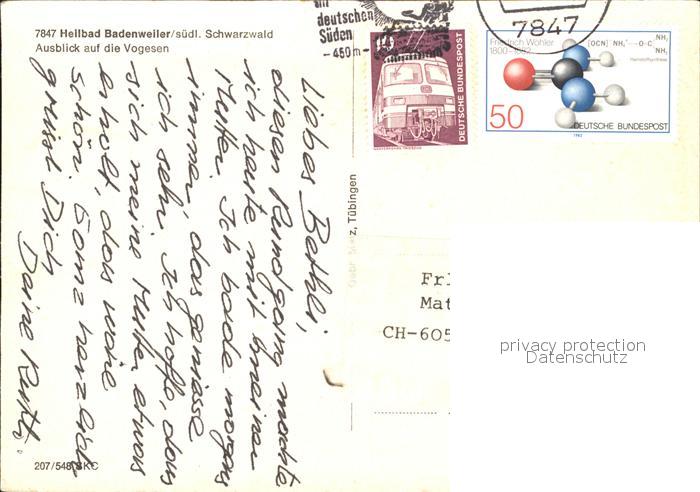 7847 Heilbad Badenweiler/südl. Schwarzwald
Ausblick auf die Vogesen
im
deutschen
Süden
-450m-
7847
10
DEUTSCHE BUNDESPOST
Friedrich Wöhler
1800-1882
[OCN]⁻ NH₄⁺ → O=C NH₂ NH₂
Harnstoffsynthese
50
DEUTSCHE BUNDESPOST
1982
Liebes Bethli,
diesen Rundgang machte
ich heute mit meiner
Mutter. Ich bade morgens
immer, das geniesse
ich sehr. Ich hoffe, dass
sich meine Mutter etwas
erholt, das wäre
schön. Ganz herzlich
grüsst Dich
Deine Ruth
Tübingen
Frl
Mat
CH-605
privacy protection
Datenschutz
207/548 SKC